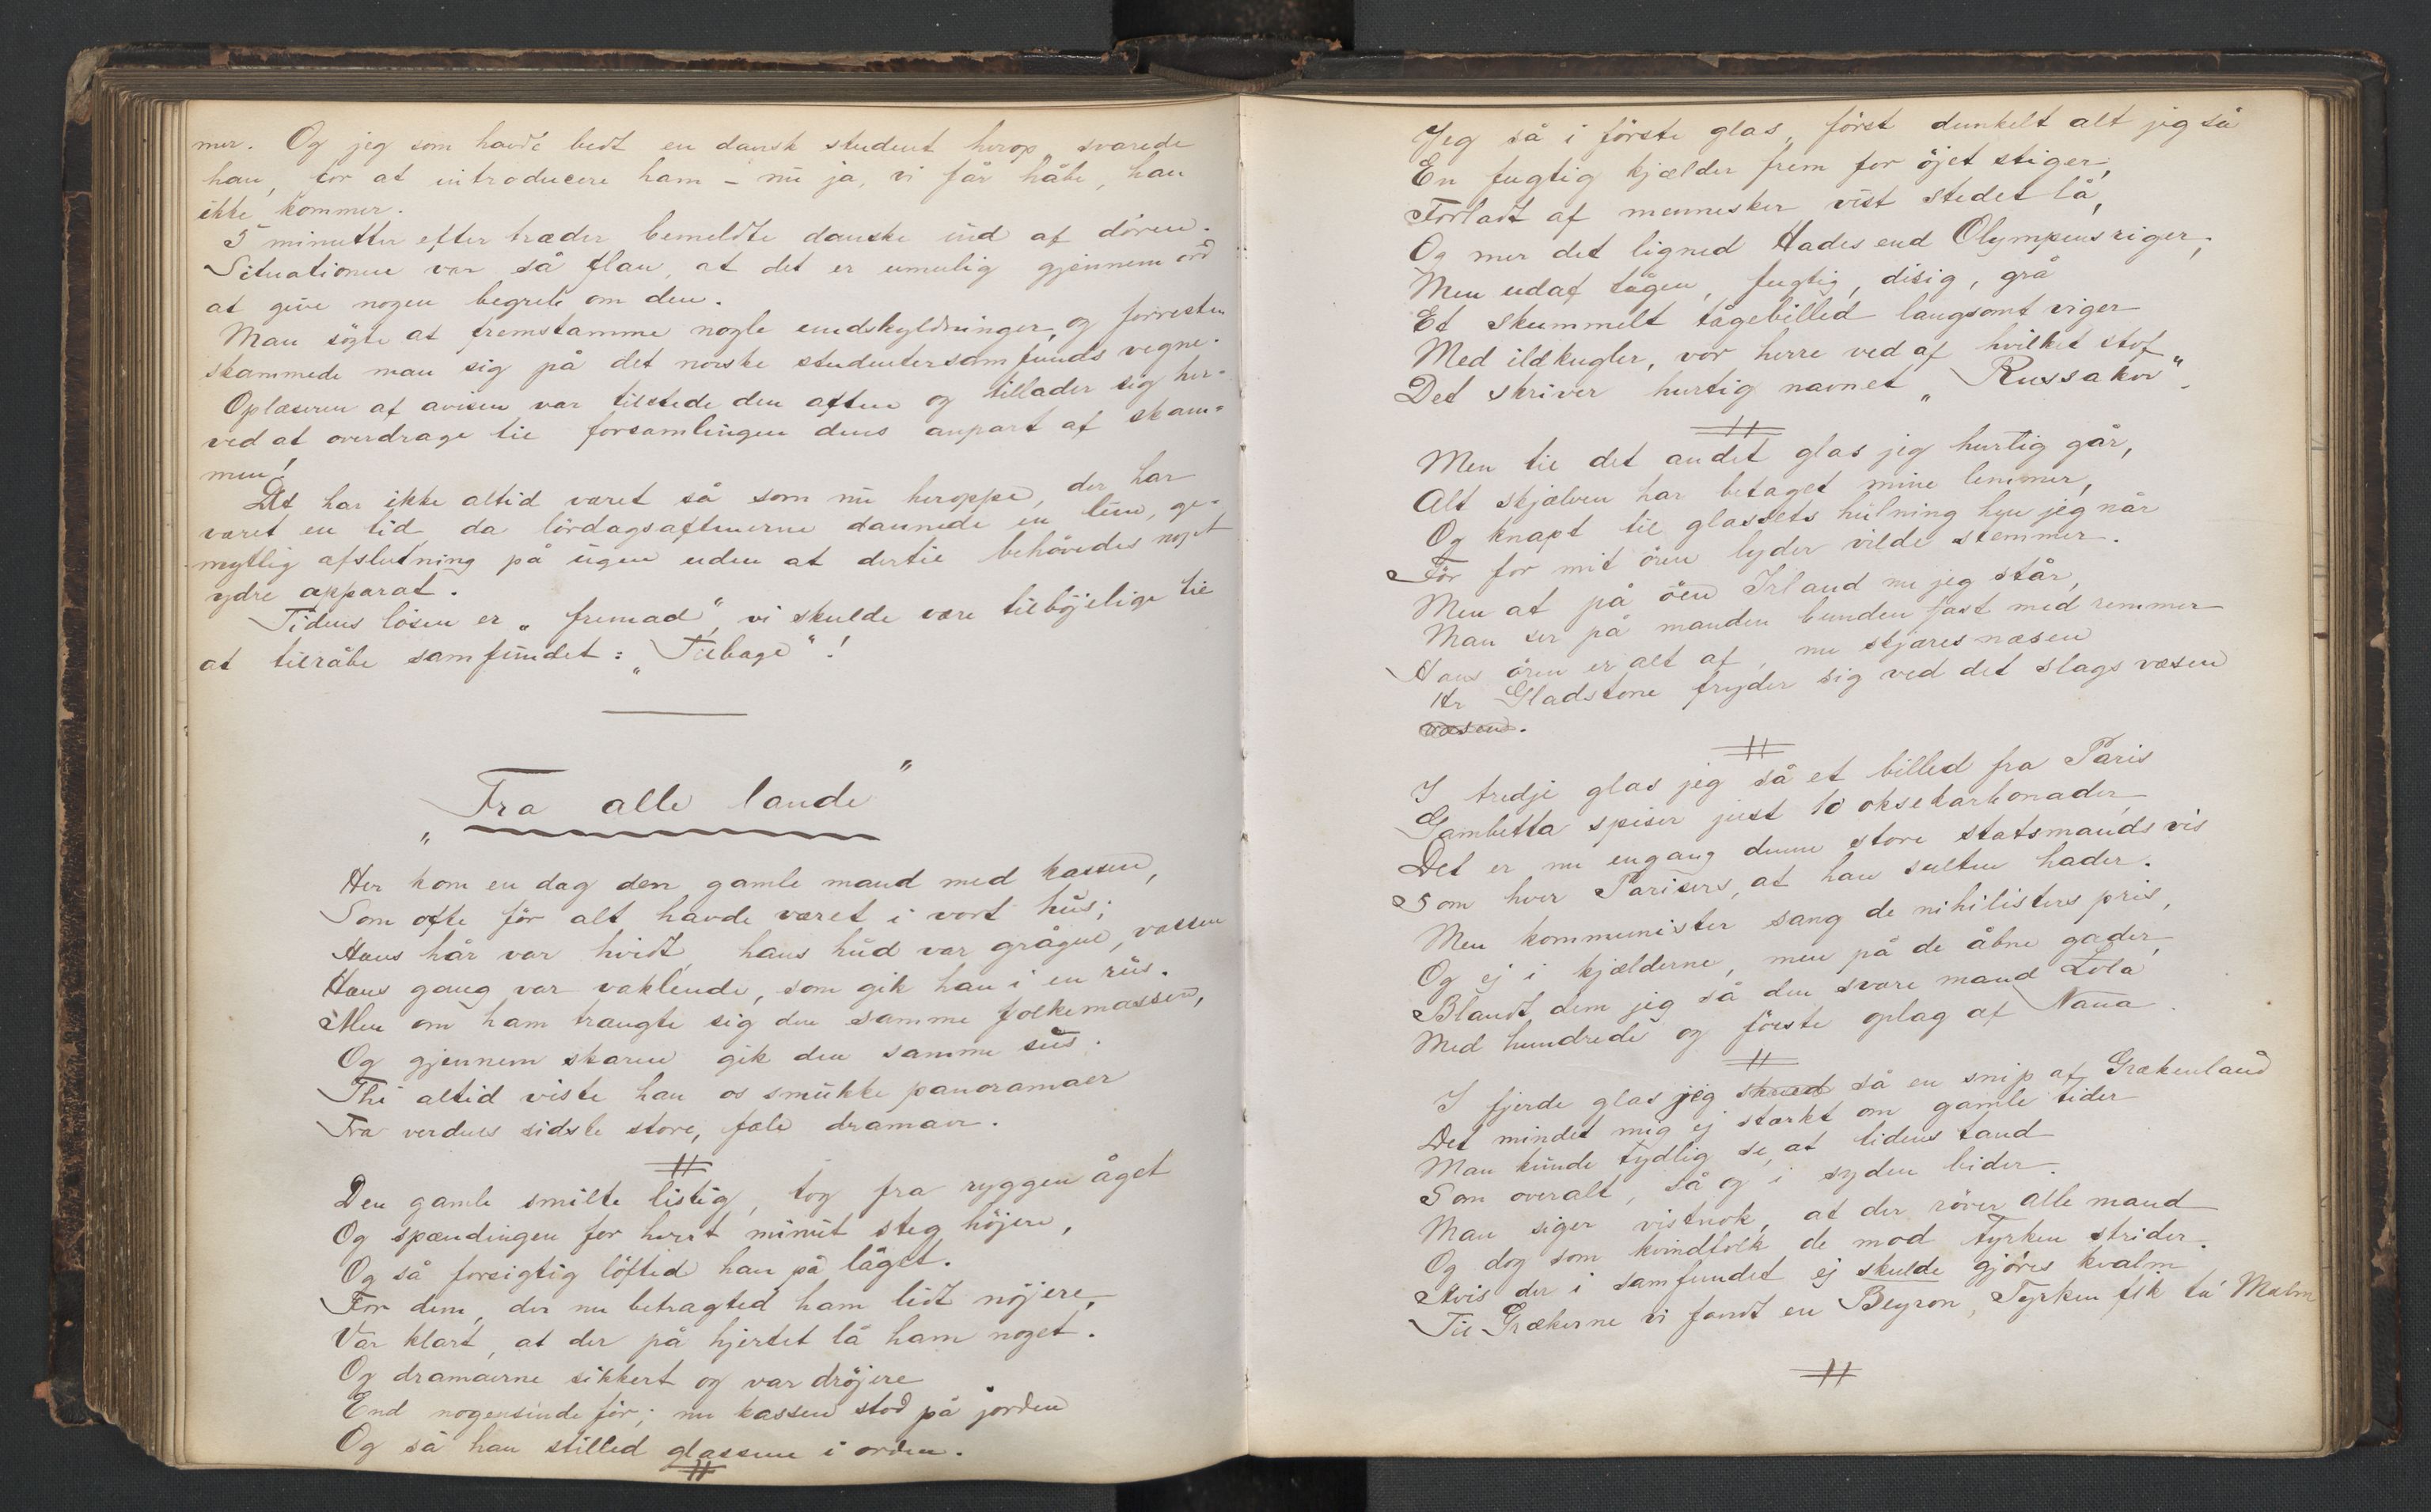 mer. Og jeg som havde bedt en dansk student herop, svarede
han, for at introducere ham – nu ja, vi får håbe, han
ikke kommer.
5 minutter efter træder bemeldte danske ind af døren.
Situationen var så flau, at det er umulig gjennem ord
at give nogen begreb om den.
Man søgte at fremstamme nogle undskyldninger, og forresten
skammede man sig på det norske studentersamfunds vegne.
Oplæseren af avisen var tilstede den aften og tillader sig her-
ved at overdrage til forsamlingen dens anpart af skam-
men!
Det har ikke altid været så som nu heroppe, der har
været en tid, da lördagsaftnerne dannede en lun, ge-
mytlig afslutning på ugen uden at dertil behövedes noget
ydre apparat.
Tidens løsen er „fremad“, vi skulde være tilböjelige til
at tilråbe samfundet: „Tilbage“!
„Fra alle lande“
Her kom en dag den gamle mand med kassen,
Som ofte för alt havde været i vort hus;
Hans hår var hvidt, hans hud var grågul, vassen
Hans gang var vaklende, som gik han i en rus.
Men om ham trængte sig den samme folkemassen,
Og gjennem skaren gik den samme sus.
Thi altid viste han os smukke panoramaer
Fra verdens sidste store, fæle dramaer.
Den gamle smilte listig, tog fra ryggen åget
Og spændingen for hvert minut steg höjere,
Og så forsigtig löfted han på låget.
For dem, der nu betragted ham lidt nöjere,
Var klart, at der på hjertet lå ham noget.
Og dramaerne sikkert og var dröjere
End nogensinde för; nu kassen stod på jorden
Og så han stilled glassene i orden.
Jeg så i förste glas, först dunkelt alt jeg så
En fugtig kjælder frem for öjet stiger,
Forladt af mennesker vist stedet lå,
Og mer det ligned Hades end Olympens riger;
Men udaf tågen, fugtig, disig, grå
Et skummelt tågebilled langsomt viger
Med ildkugler, vor herre ved af hvilket stof
Det skriver hurtig navnet „Russakov“.
Men til det andet glas jeg hurtig går,
Alt skjælven har betaget mine lemmer,
Og knapt til glassets hulning hen jeg når
Før for mit ören lyder vilde stemmer.
Men at på öen Irland nu jeg står,
Man ser på manden bunden fast med remmer
Hans ören er alt af, nu skjæres næsen
Hr Gladstone fryder sig ved det slags væsen
væsen.
I tredje glas jeg så et billed fra Paris
Gambetta spiser just 10 oksekarbonader,
Det er nu engang denne store statsmands vis
Som hver Parisers, at han sulten hader.
Men kommunister sang de nihilisters pris,
Og ej i kjælderne, men på de åbne gader,
Blandt dem jeg så den svære mand Zola
Med hundrede og förste oplag af Nana.
I fjerde glas jeg skued så en snip af Grækenland
Det mindet mig ej stærkt om gamle tider
Man kunde tydlig se, at tidens tand
Som overalt, så og i syden bider.
Man siger vistnok, at der röver alle mand
Og dog som kvindfolk de mod Tyrken strider.
Hvis der i samfundet ej skulde gjöres kvalm
Til Grækerne vi fandt en Beyron, Tyrken fik ta Malm